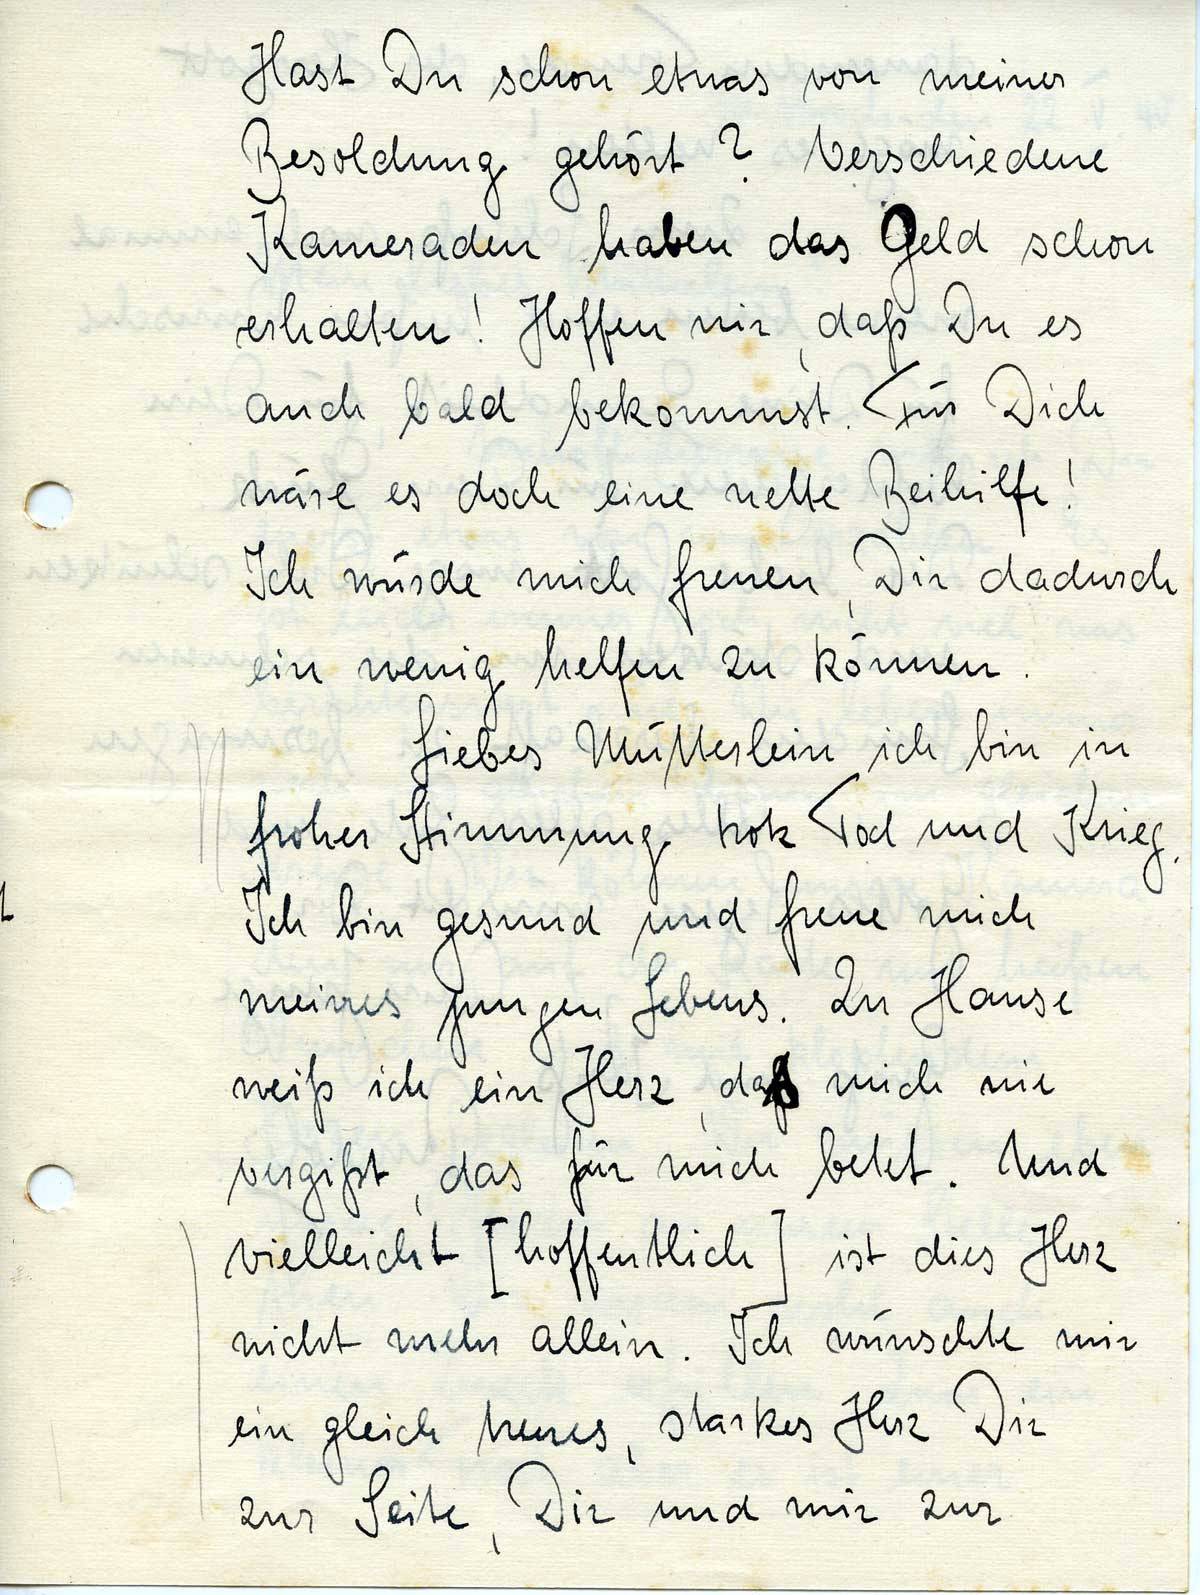 Hast Du schon etwas von meiner
Besoldung gehört? Verschiedene
Kameraden haben das Geld schon
erhalten! Hoffen wir, daß Du es
auch bald bekommst. Für Dich
wäre es doch eine nette Beihilfe!
Ich würde mich freuen, Dir dadurch
ein wenig helfen zu können.
Liebes Mütterlein ich bin in
froher Stimmung trotz Tod und Krieg.
Ich bin gesund und freue mich
meines jungen Lebens. Zu Hause
weiß ich ein Herz, daß mich nie
vergißt, das für mich betet. Und
vielleicht [hoffentlich] ist dies Herz
nicht mehr allein. Ich wünschte mir
ein gleich treues, starkes Herz Dir
zur Seite, Dir und mir zur